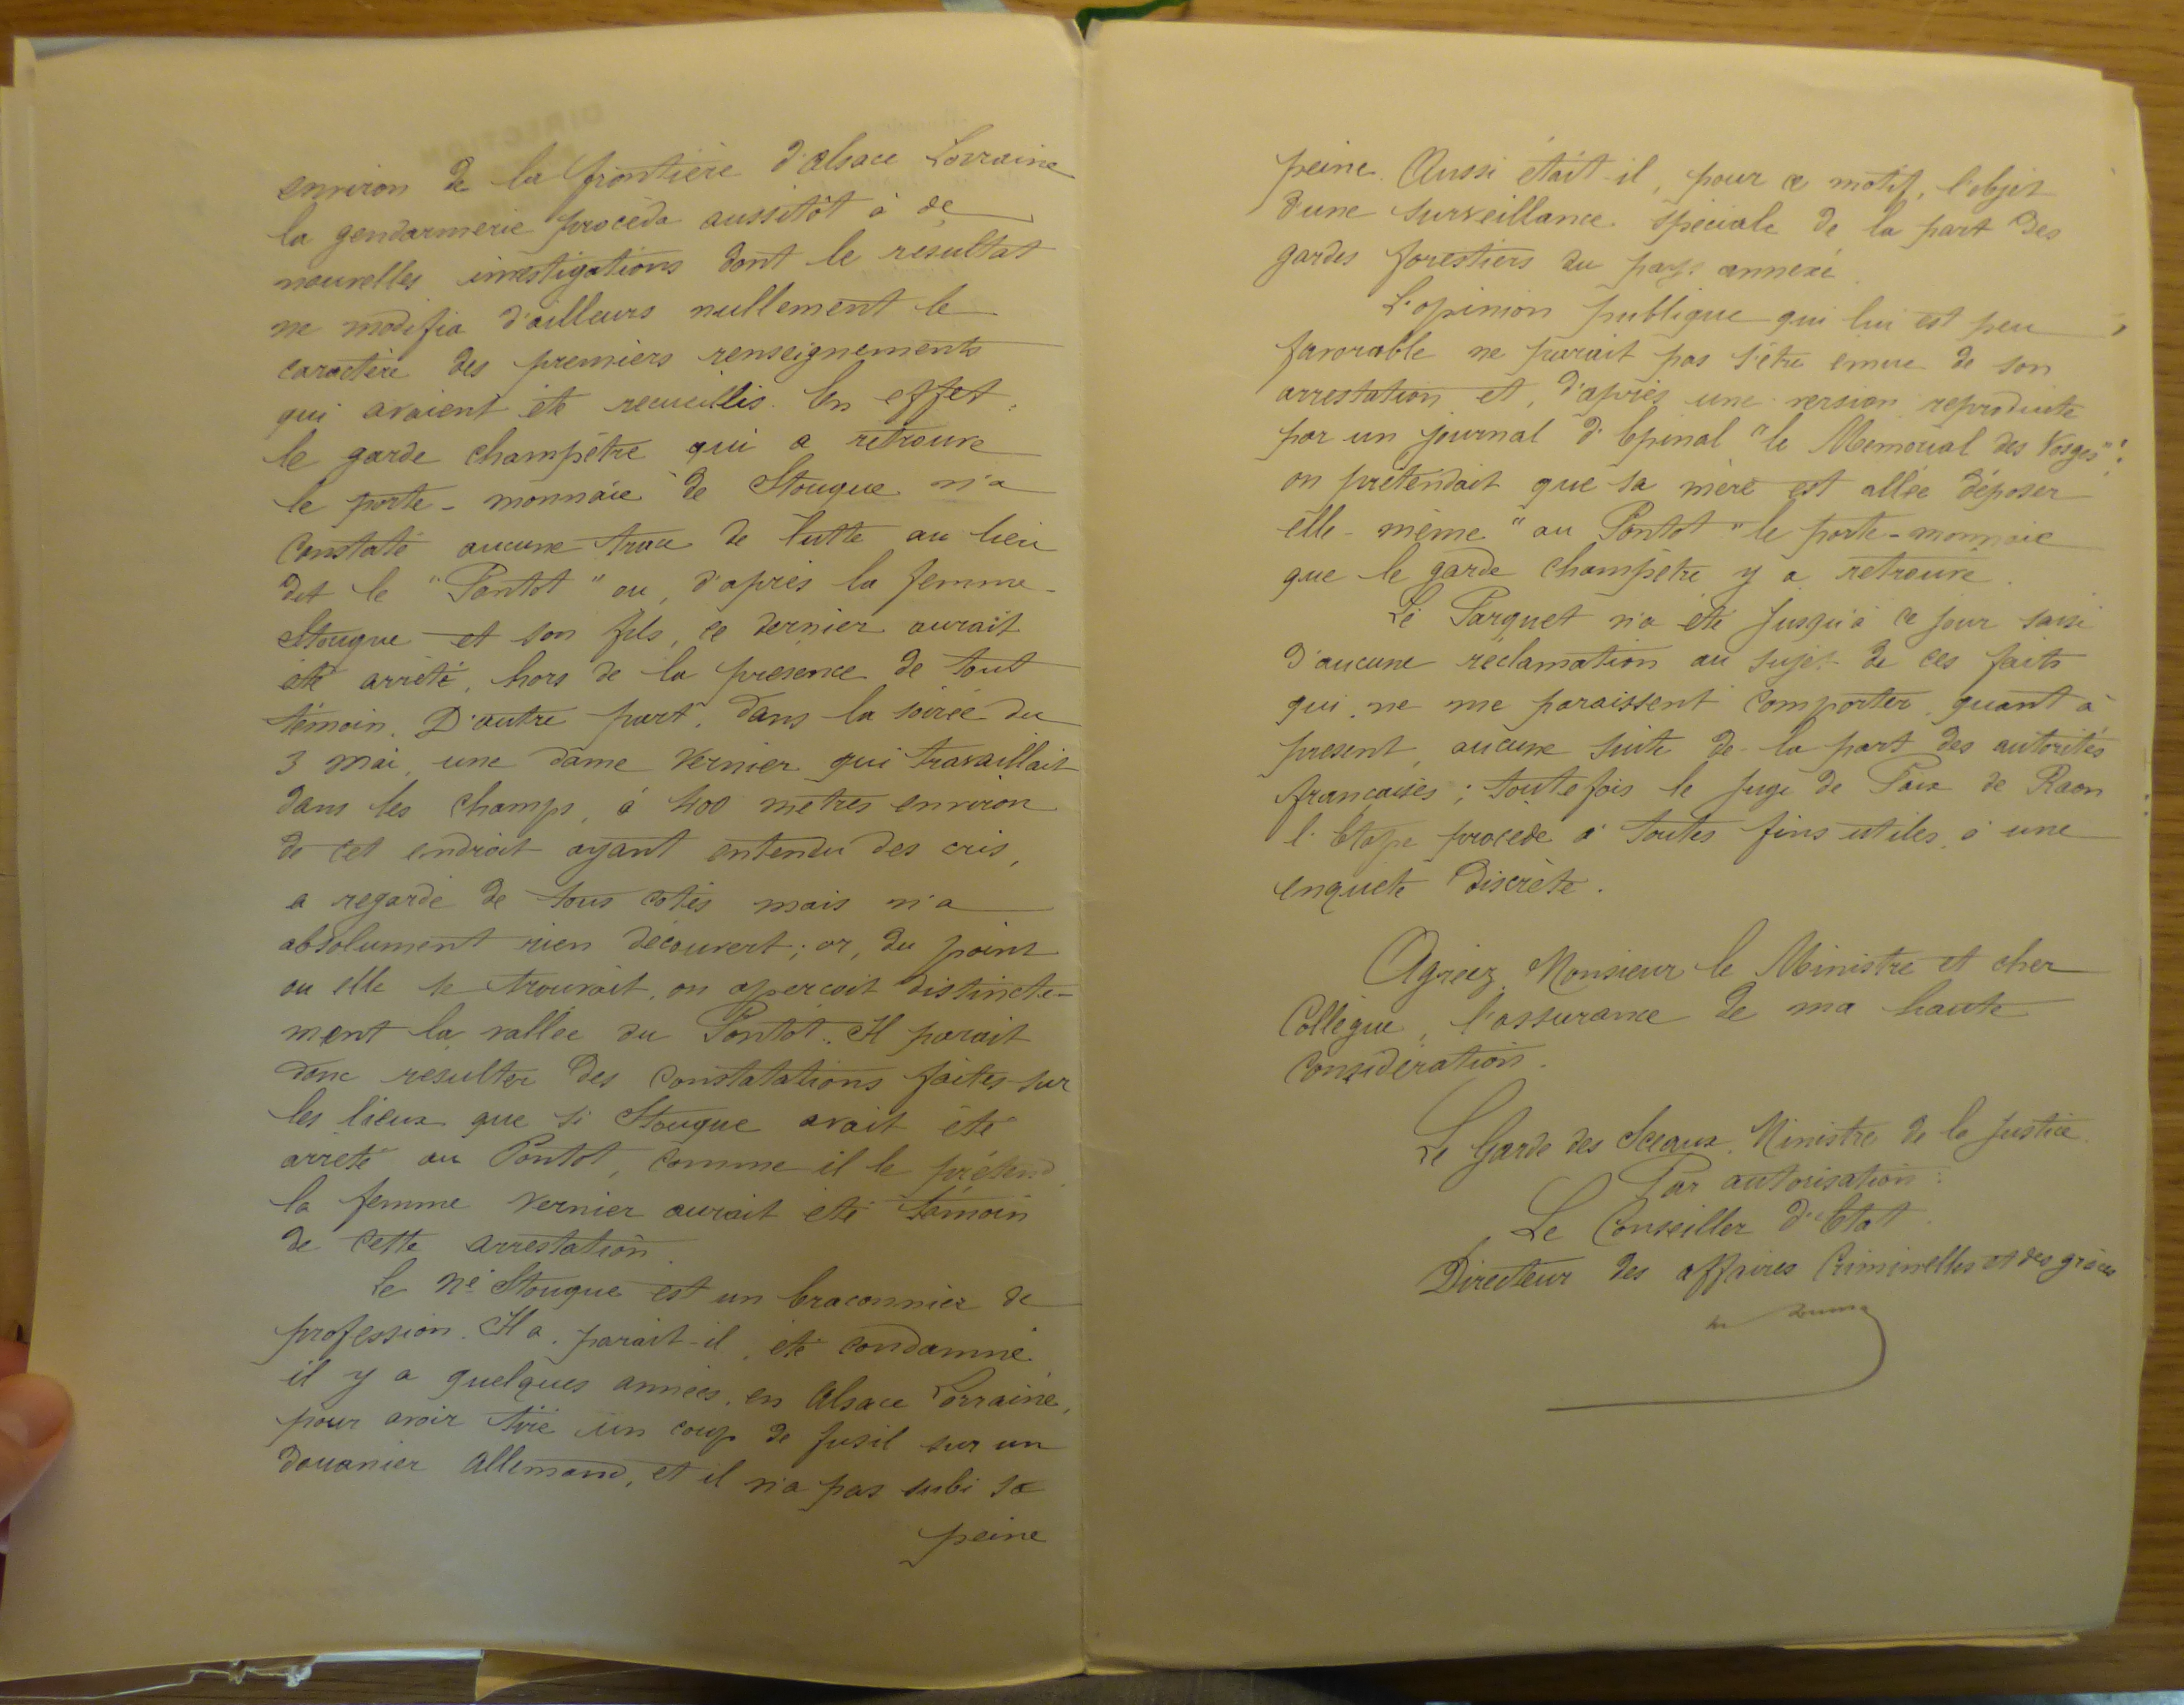 environ de la frontière d'Alsace Lorraine
la gendarmerie procéda aussitôt à de
nouvelles investigations dont le résultat
ne modifia d'ailleurs nullement le
caractère des premiers renseignements
qui avaient été recueillis. En effet,
le garde champêtre qui a retrouvé
le porte-monnaie de Stouque n'a
constaté aucune trace de lutte au lieu
dit le "Pontot" ou, d'après la femme
Stouque et son fils, ce dernier aurait
été arrêté, hors de la présence de tout
témoin. D'autre part, dans la soirée du
3 mai, une dame Vernier qui travaillait
dans les champs, à 400 mètres environ
de cet endroit ayant entendu des cris,
a regardé de tous cotés mais n'a
absolument rien découvert; or, du point
ou elle se trouvait, on aperçoit distincte-
ment la vallée du Pontot. Il parait
donc résulter des constatations faites sur
les lieux que si Stouque avait été
arrêté au Pontot, comme il le prétend
la femme Vernier aurait été témoin
de cette arrestation.
Le né Stouque est un braconnier de
profession. Il a, parait-il, été condamné
il y a quelques années, en Alsace Lorraine,
pour avoir tiré un coup de fusil sur un
douanier Allemand, et il n'a pas subi sa
peine
peine. Aussi était-il, pour ce motif, l'objet
d'une surveillance spéciale de la part des
gardes forestiers du pays annexé.
L'opinion publique qui lui est peu
favorable ne parait pas s'être émue de son
arrestation et, d'après une version reproduite
par un journal d'Epinal "le Mémorial des Vosges",
on prétendait que sa mère est allée déposer
elle-même "au Pontot" le porte-monnaie
que le garde champêtre y a retrouvé.
Le Parquet n'a été jusqu'à ce jour saisi
d'aucune réclamation au sujet de ces faits
qui ne me paraissent comporter, quant à
présent, aucune suite de la part des autorités
françaises; toutefois le juge de Paix de Raon
l'Etape procède à toutes fins utiles, à une
enquête discrète.
Agréez, Monsieur le Ministre et cher
Collègue, l'assurance de ma haute
considération.
Le Garde des Sceaux, Ministre de la Justice.
Par autorisation:
Le Conseiller d'Etat
Directeur des affaires Criminelles et des grâces